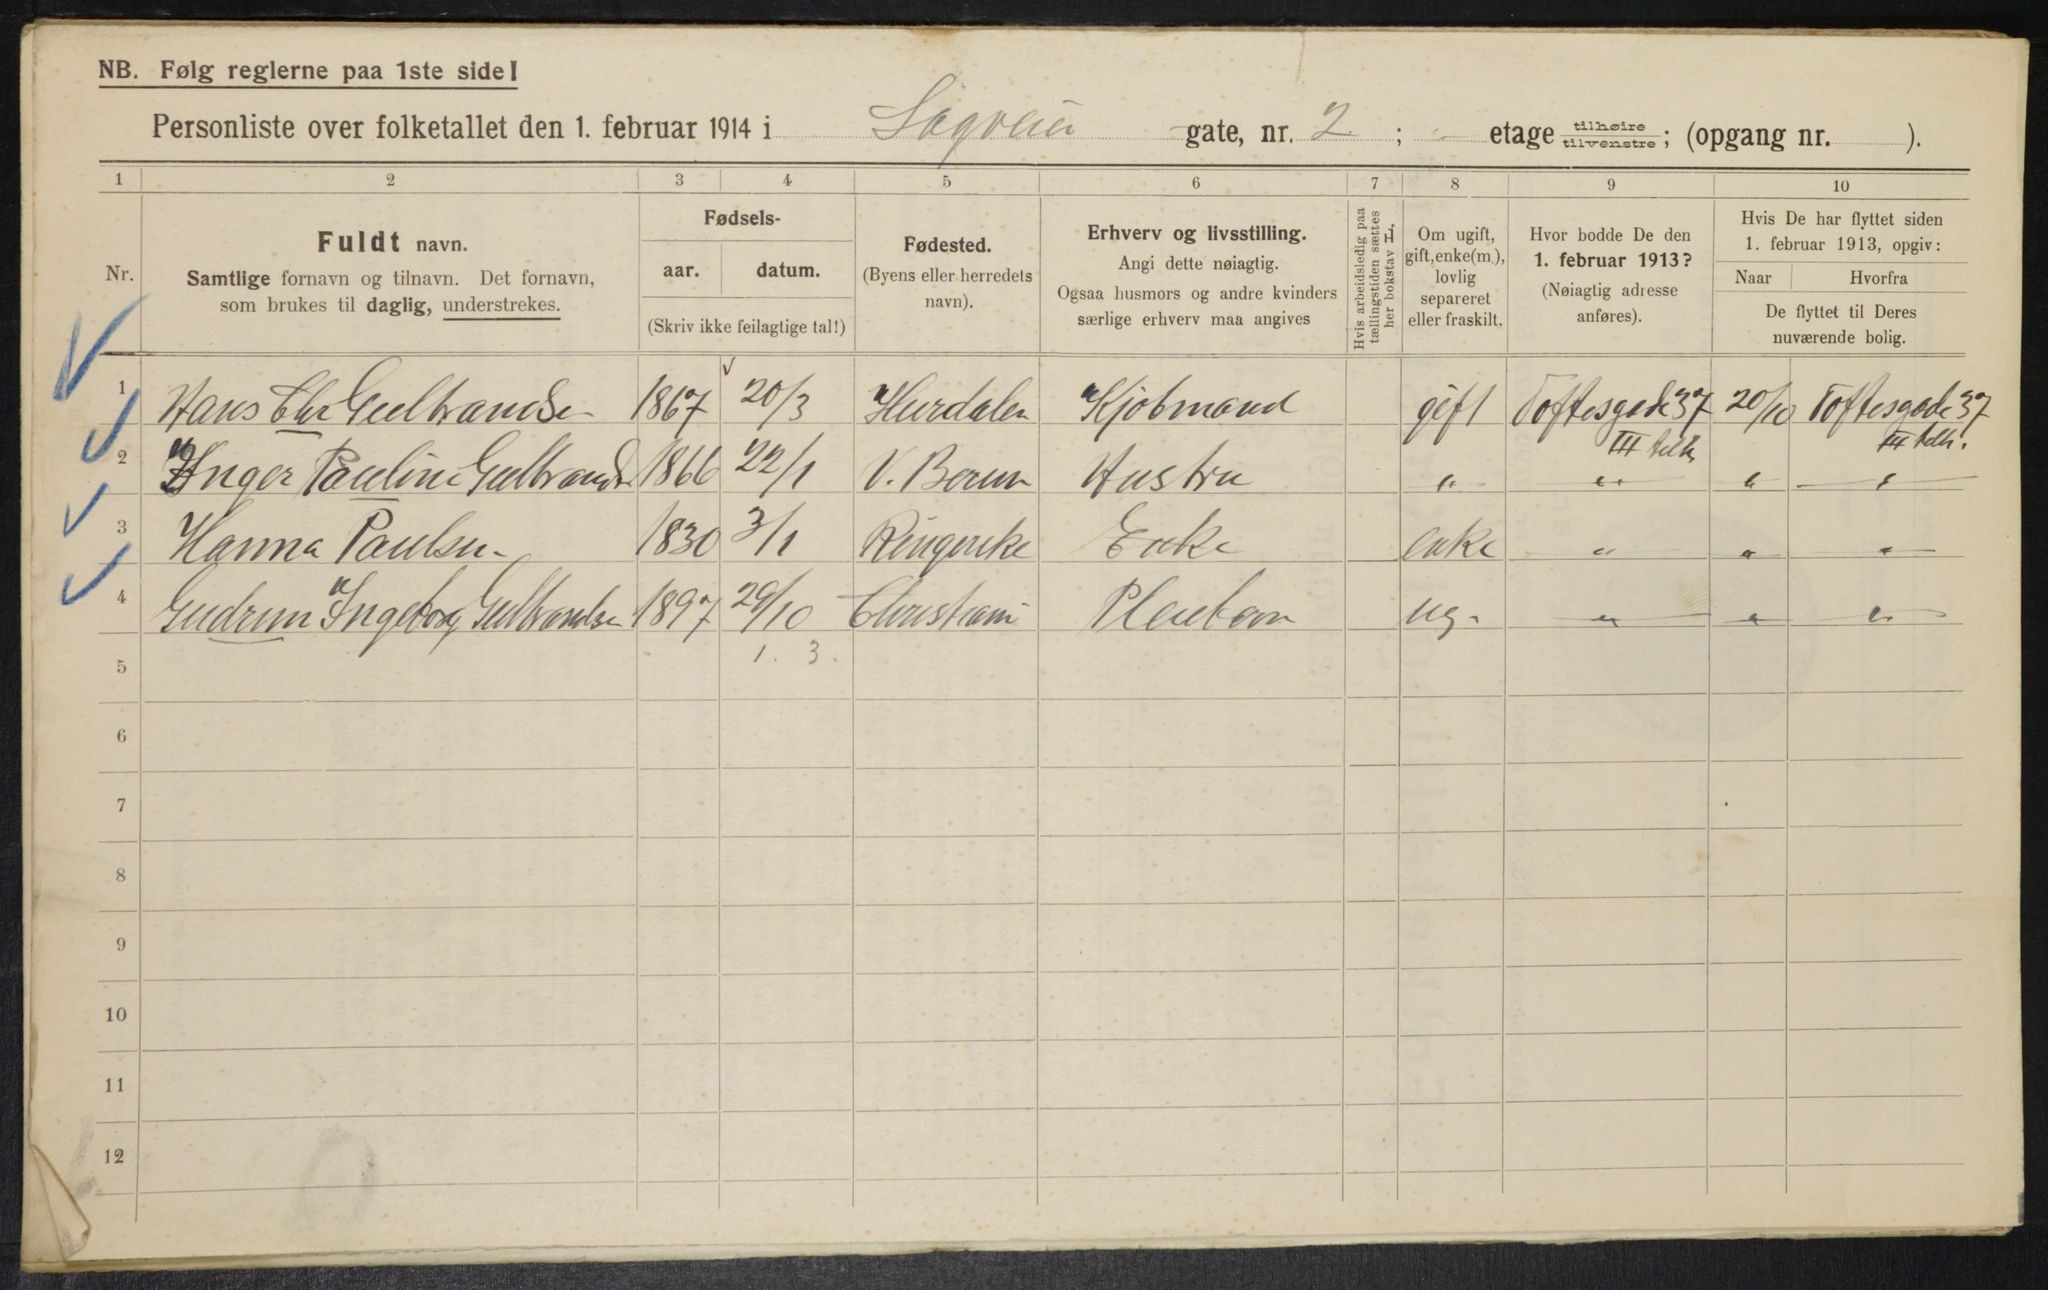 NB. Følg reglerne paa 1ste side!
Personliste over folketallet den 1. februar 1914 i Sogveien gate, nr. 2 ; etage tilhøire/tilvenstre; (opgang nr. ).
1 2 3 4 5 6 7 8 9 10
Nr.
Fuldt navn.
Samtlige fornavn og tilnavn. Det fornavn,
som brukes til daglig, understrekes.
Fødsels-
aar. datum.
(Skriv ikke feilagtige tal!)
Fødested.
(Byens eller herredets
navn).
Erhverv og livsstilling.
Angi dette nøiagtig.
Ogsaa husmors og andre kvinders
særlige erhverv maa angives
Hvis arbeidsledig paa
tællingstiden sættes
her bokstav L.
Om ugift,
gift, enke(m.),
lovlig
separeret
eller fraskilt.
Hvor bodde De den
1. februar 1913?
(Nøiagtig adresse
anføres).
Hvis De har flyttet siden
1. februar 1913, opgiv:
Naar Hvorfra
De flyttet til Deres
nuværende bolig.
1 Hans Chr Gulbrandsen 1867 20/3 Hurdalen Kjøbmand gift Toftesgade 37 III tilh. 20/10 Toftesgade 37 III tilh.
2 Inger Pauline Gulbrands. 1866 22/1 V. Bærum Hustru " " " "
3 Hanna Paulsen 1830 3/1 Ringerike Enke enke " " "
4 Gudrun Ingeborg Gulbrandsen 1897 29/10 Christiani Pleiebarn ug. " " "
5 1. 3.
6
7
8
9
10
11
12